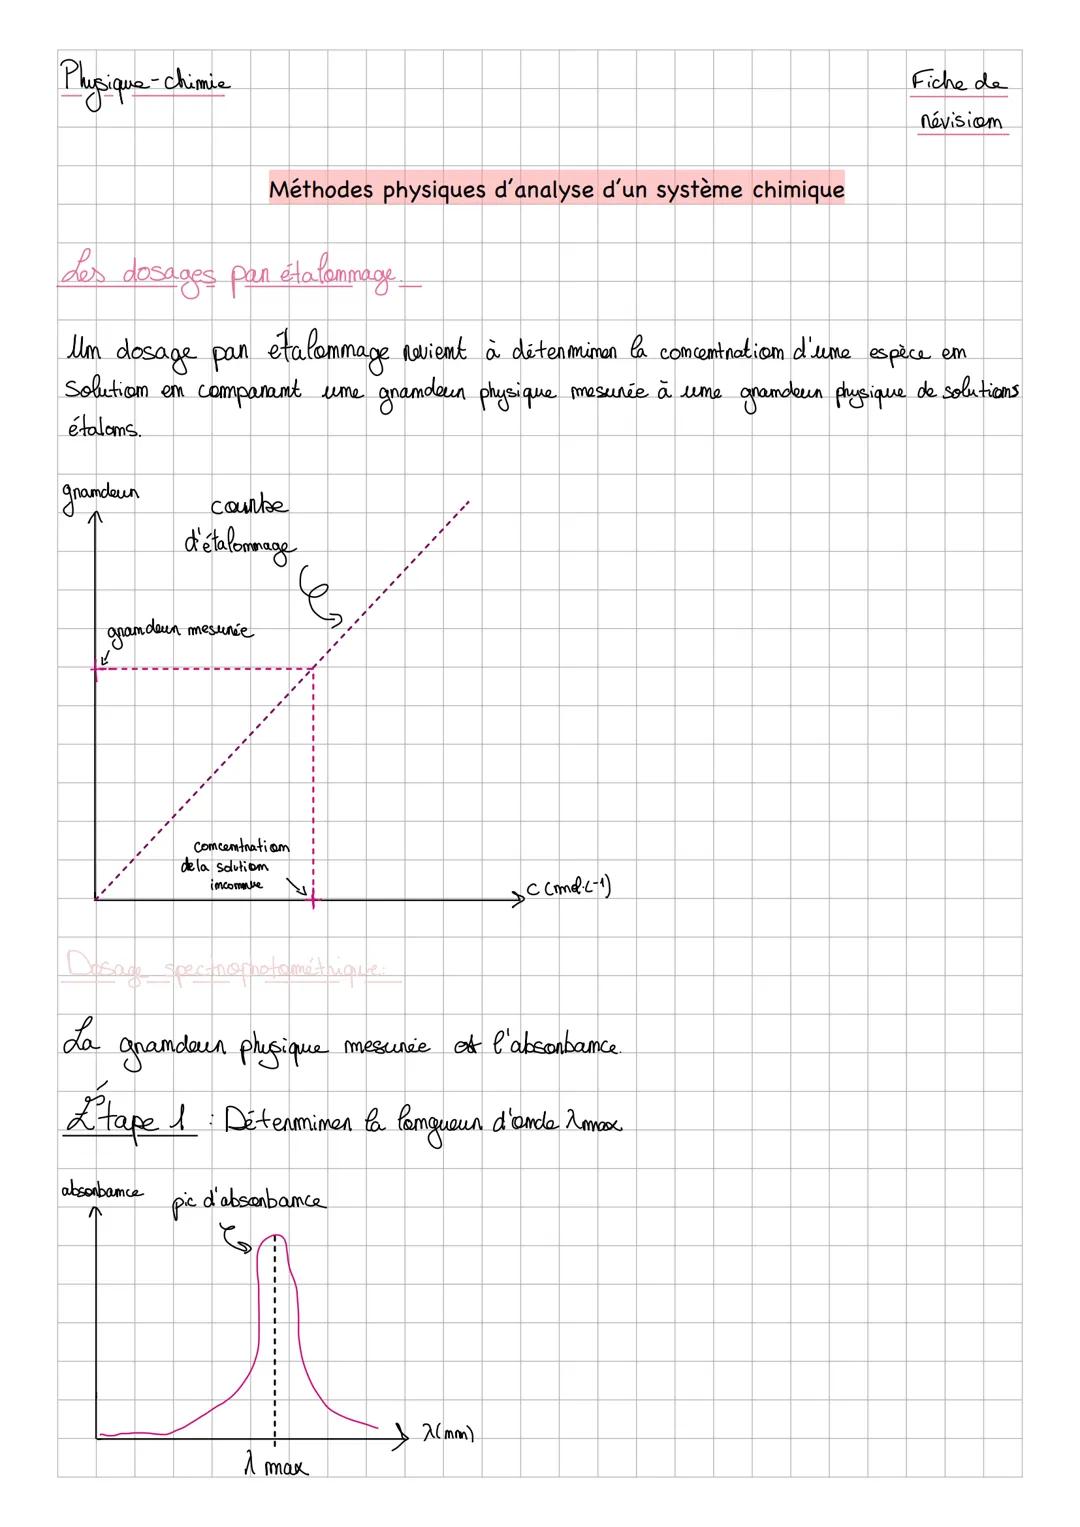 Physique-chimie
Fiche de
révision
Méthodes physiques d'analyse d'un système chimique
Les dosages par étalonnage.
Un dosage par étalonnage revient à déterminer la concentration d'une espèce en
solution en comparant une grandeur physique mesurée à une grandeur physique de solutions
étalons.
grandeur
courbe
d'étalonnage
grandeur mesurée
concentration
de la solution
inconnue
C (mol.L-1)
Dosage spectrophotométrique:
La grandeur physique mesurée est l'absorbance.
Étape 1 : Déterminer la longueur d'onde λmax
absorbance
pic d'absorbance
λ(nm)
λ max